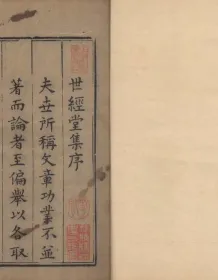 世經堂集序
夫世所稱文章功業不並
著而論者至偏舉以各取